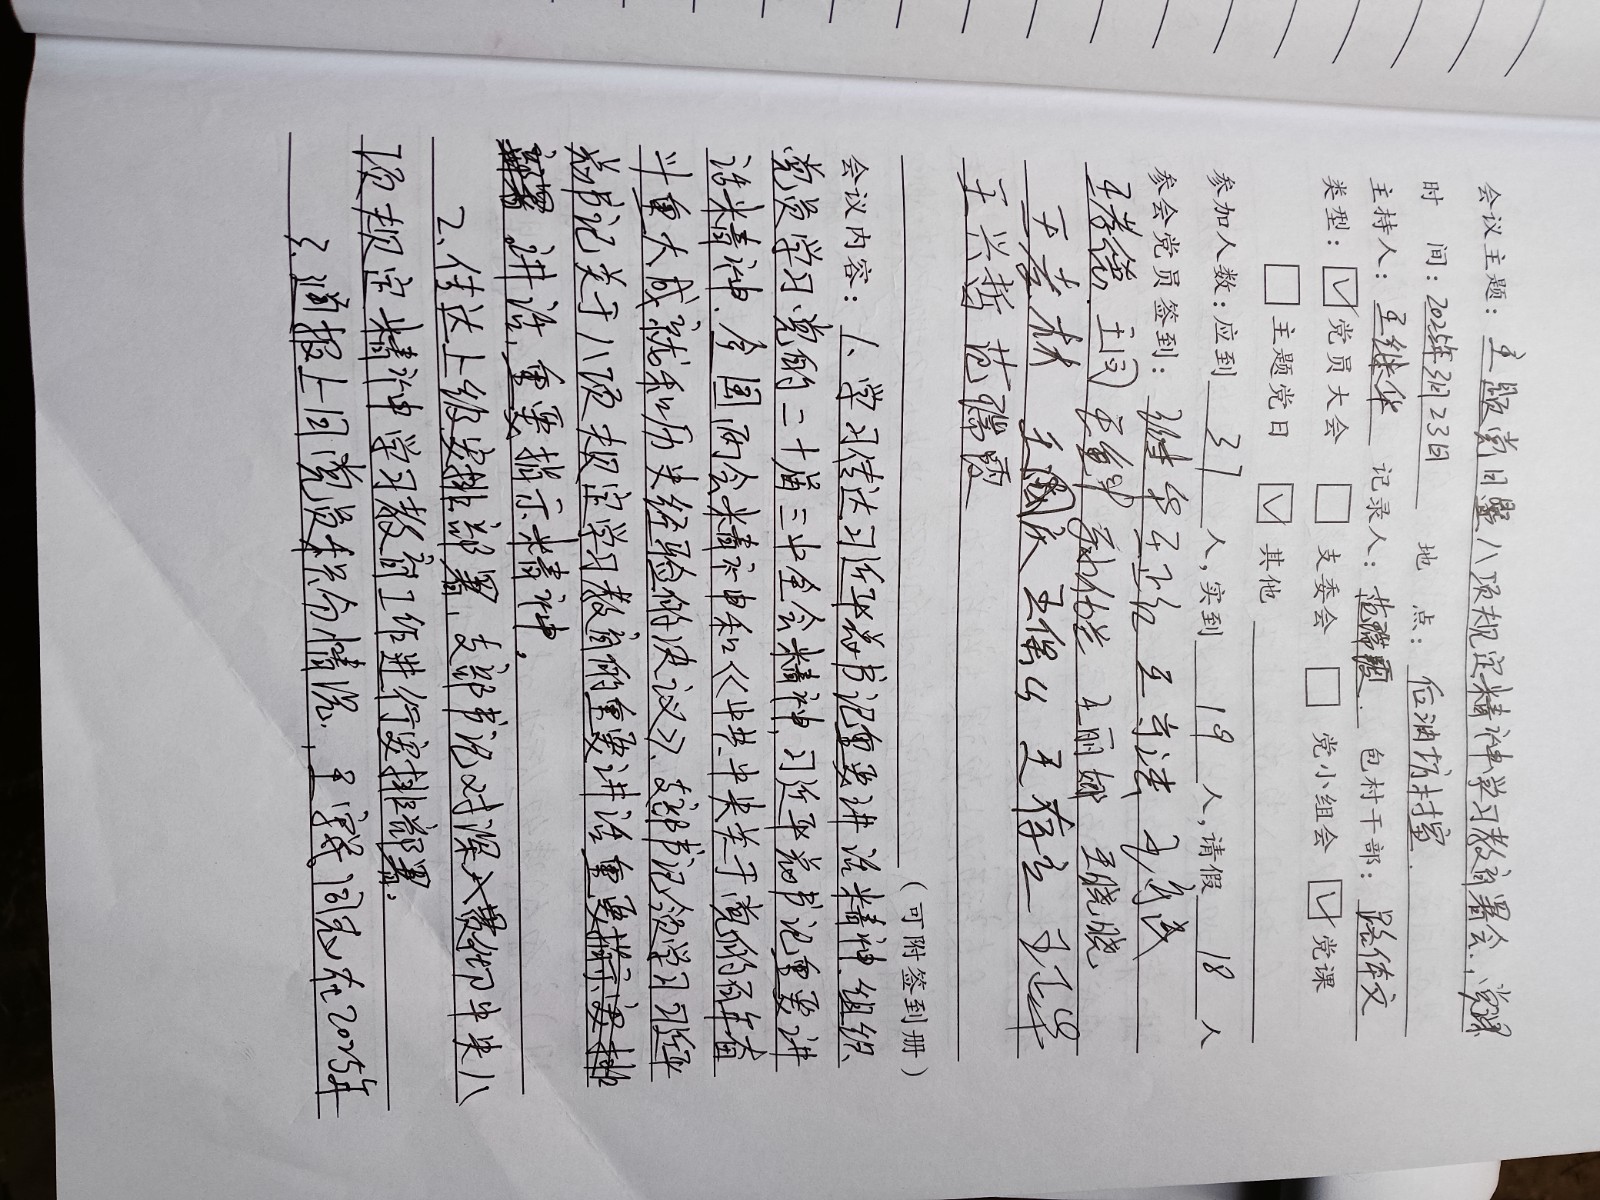 会议主题：主题党日暨八项规定精神学习教育署会、党课
时 间：2025年3月23日 地 点：后油坊村室
主持人：王继华 记录人：范瑞霞 包村干部：
类型：☑党员大会 □支委会 □党小组会 ☑党课
□主题党日 ☑其他
参加人数：应到 37 人，实到 19 人，请假 18 人
参会党员签到：
王晓晓
王孝林 王国庆
王兴哲 范瑞霞
（可附签到册）
会议内容：1、学习传达习近平总书记重要讲话精神、组织
党员学习党的二十届三中全会精神，习近平总书记重要讲
话精神、全国两会精神和《中共中央关于党的百年奋
斗重大成就和历史经验的决议》、支部书记领学习近平
总书记关于八项规定学习教育的重要讲话重要指示
讲话、重要指示精神，
2、传达上级安排部署，支部书记对深入贯彻中央八
项规定精神学习教育工作进行安排部署。
3、通报上周党员积分情况，在2025年